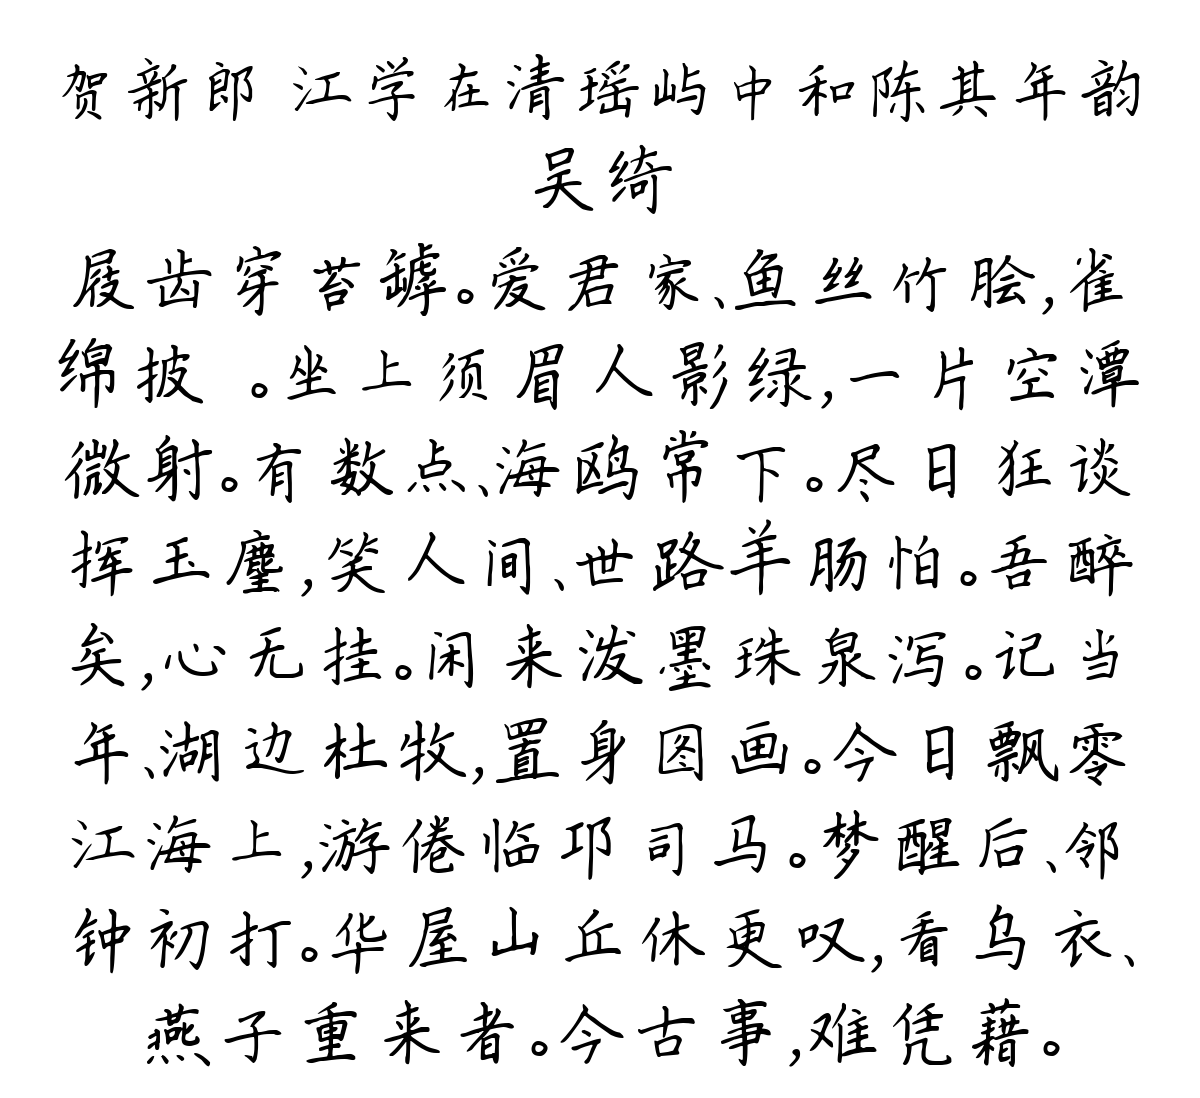 贺新郎 江学在清瑶屿中和陈其年韵
吴绮
屐齿穿苔罅。爱君家、鱼丝竹脍,雀
绵披 。坐上须眉人影绿,一片空潭
微射。有数点、海鸥常下。尽日狂谈
挥玉麈,笑人间、世路羊肠怕。吾醉
矣,心无挂。闲来泼墨珠泉泻。记当
年、湖边杜牧,置身图画。今日飘零
江海上,游倦临邛司马。梦醒后、邻
钟初打。华屋山丘休更叹,看乌衣、
燕子重来者。今古事,难凭藉。